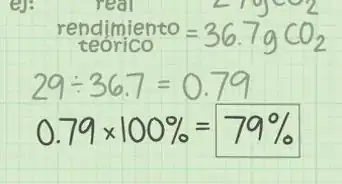 ej: real
rendimiento teórico = 36.7g CO₂
29 ÷ 36.7 = 0.79
0.79 × 100% = 79%